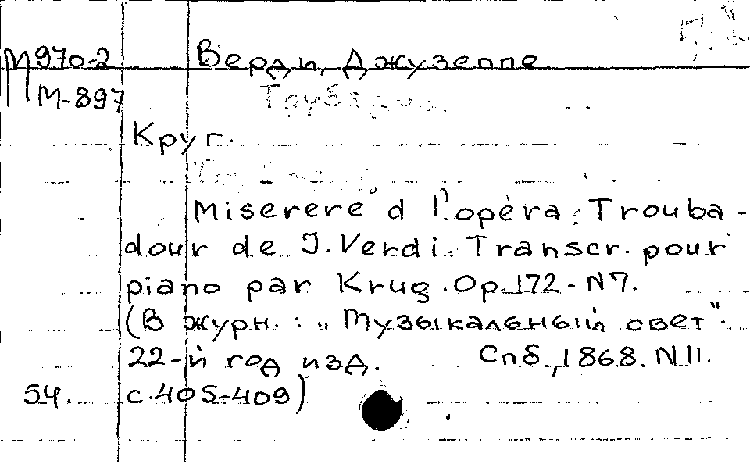 М970-2 Верди, Джузеппе
М-897 Трубадур.
Круг.
Miserere d l'opéra: Trouba-
dour de J. Verdi. Transcr. pour
piano par Krug. Op. 172 - N7.
(В журн.: „Музыкальный свет"
22-й год изд. Спб., 1868. N11.
54. с. 405-409)